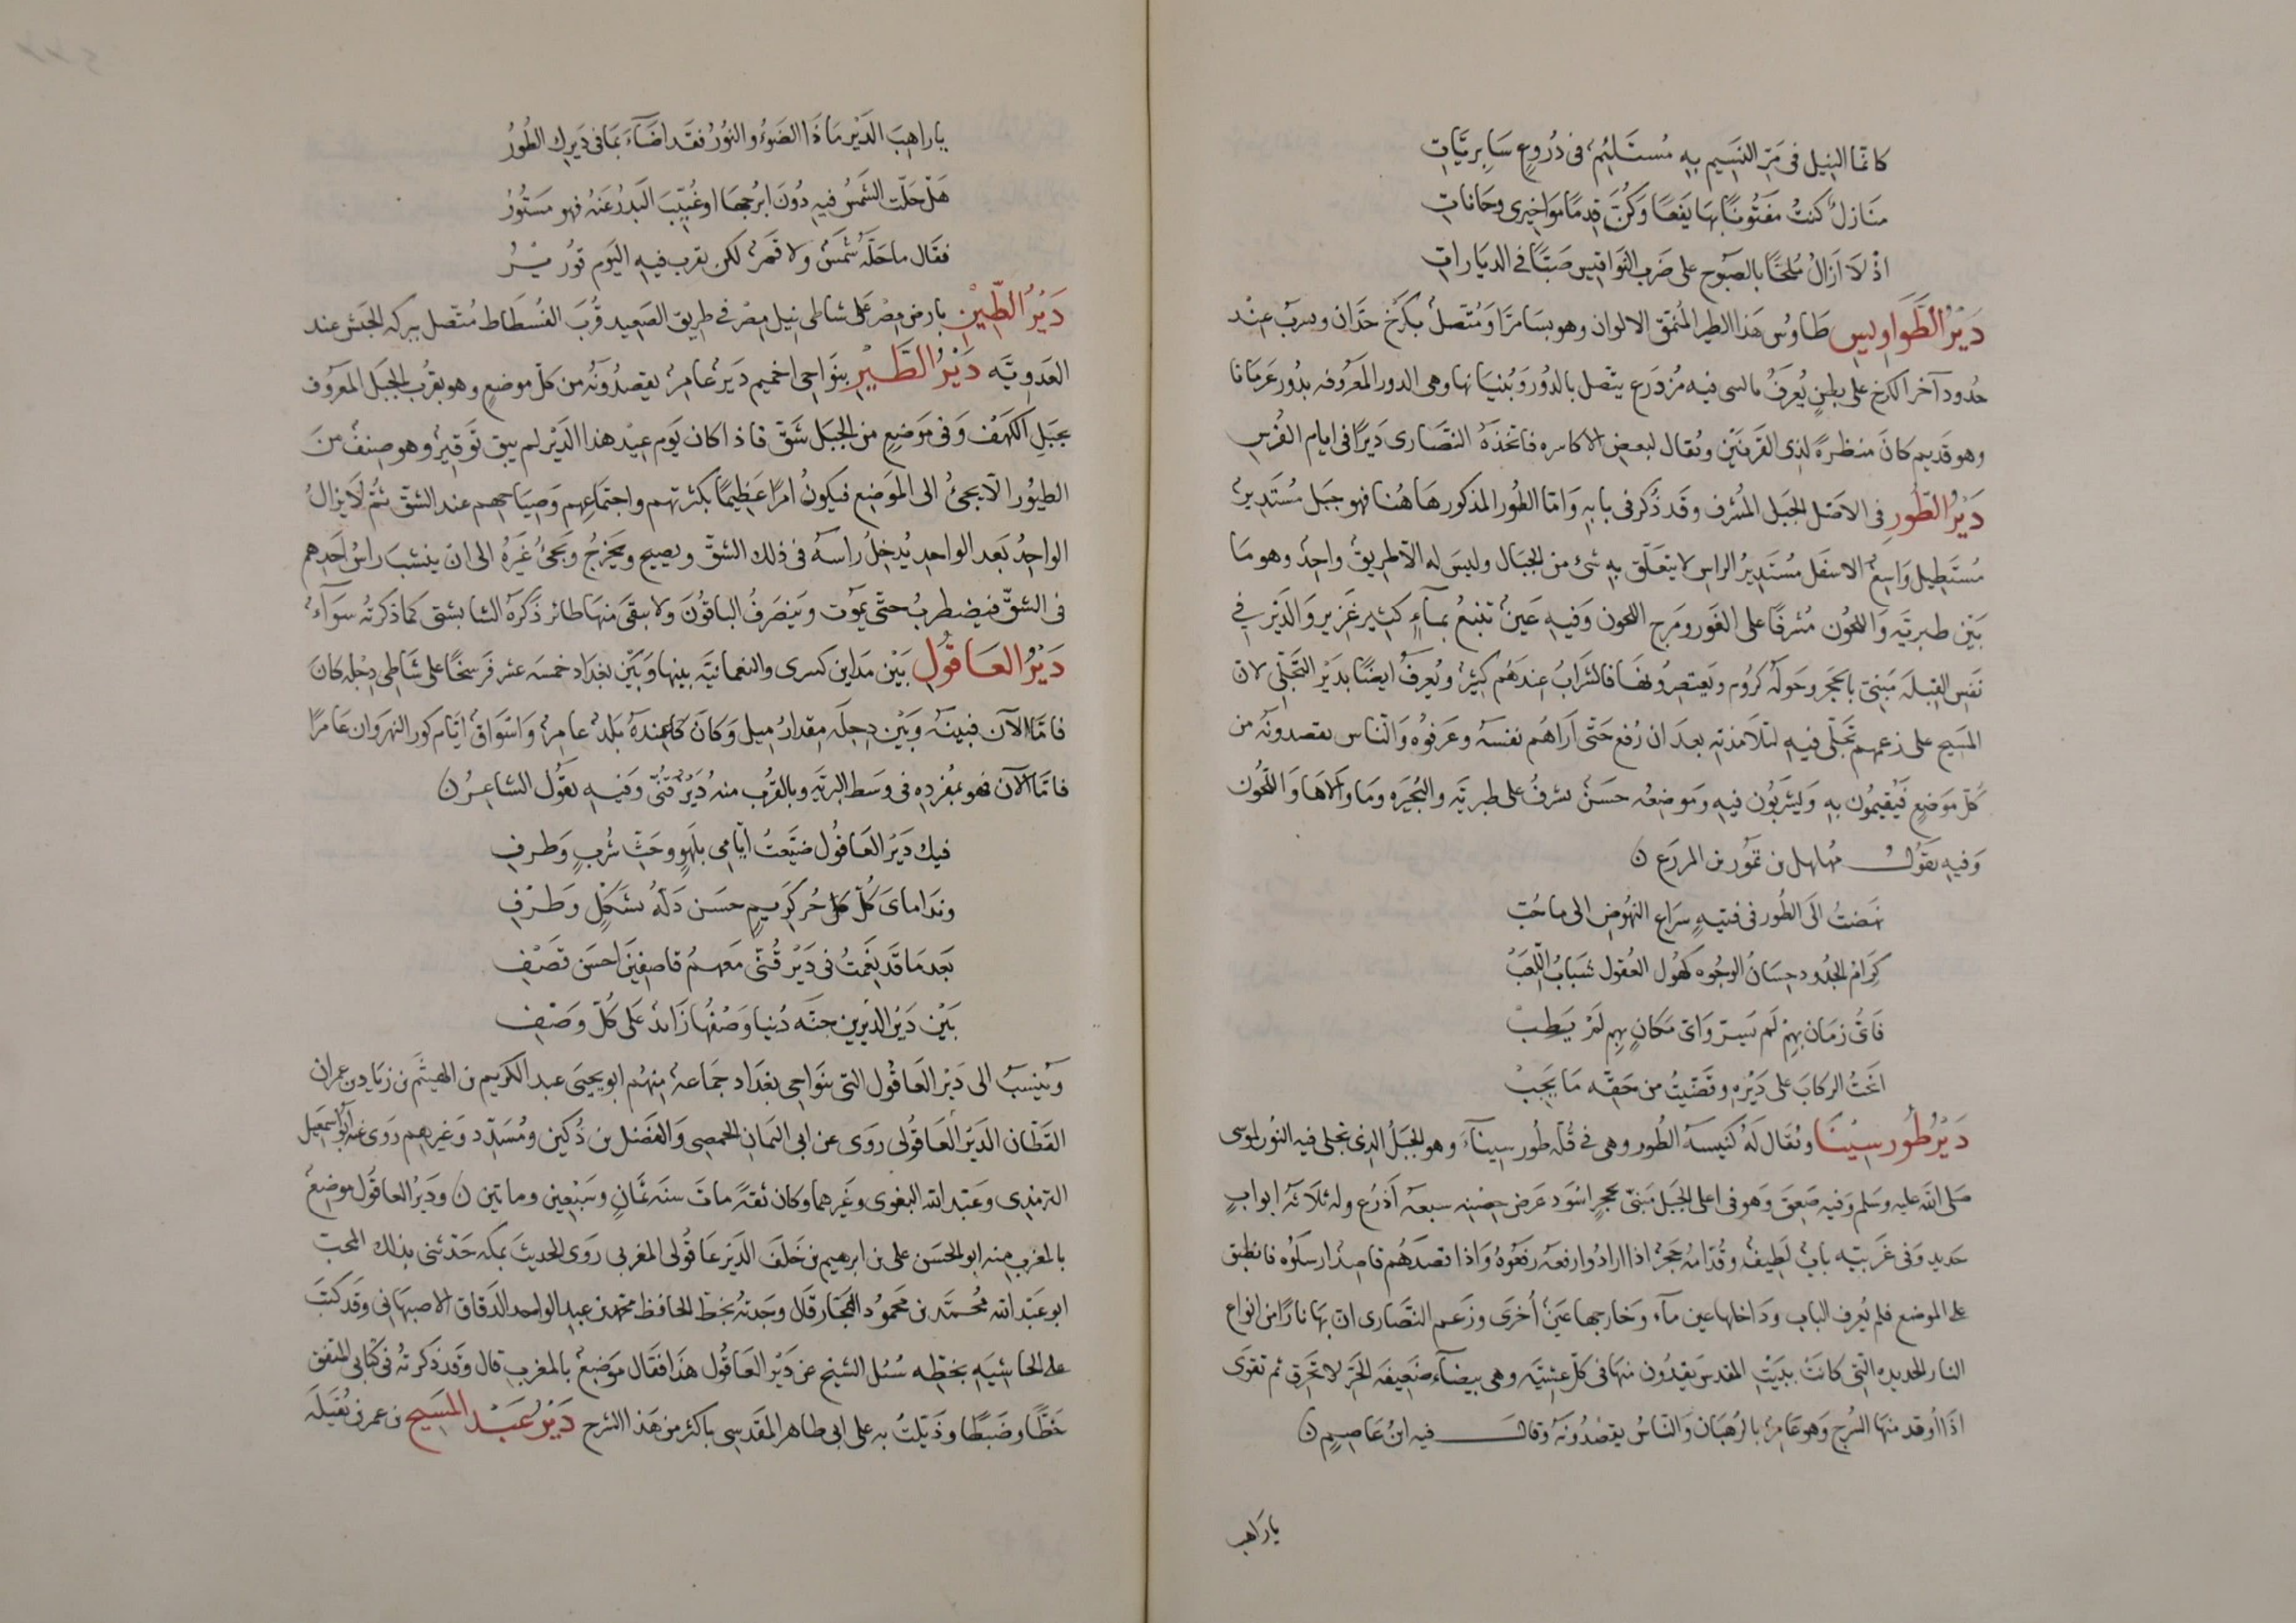 كانما النيل فى مَرّ النسِيم بهِ مُستَلئِمٌ فى دُرُوعٍ سَابِريَّاتِ
منَازلٌ كنتُ مفتُونًا بهَا يَفَعًا وَكُنَّ قِدمًا مَوَاخِيرِى وحَاناتِ
اذْ لَا اَزَالُ مُلحًّا بالصَبُوح على ضَربِ النَوَاقيسِ صَبًّا فى الديَاراتِ
دَيْرُ الطَوَاوِيسِ طَاوُس هَذا الطير المُنمق الالوان وهو بسَامَرَّا وَمُتّصل بكرْخِ جدّان وسرب عنْد
حُدود آخر الكرخ على بطنٍ يُعرَفُ بالسى فيه مُزدَرع يتّصل بالدُورِ وَبُنيَانها وهى الدور المَعرُوفه بدُور عَرمَانا
وهو قَديم كانَ منظَرةً لذِى القَرنَيْن ويُقال لبعضِ الاكاسره فاتخذَهُ النصَارى دَيرًا فى ايام الفُرسِ
دَيْرُ الطُّورِ فى الاصَل الجبَل المُشرف وقَد ذُكر فى بابهِ وَامّا الطُور المذكور هَاهُنا فهو جبَل مُستَدِيرٌ
مُستَطِيل وَاسِعُ الاسفَل مُستَدِيرُ الراس لا يتعَلّق بهِ شئ من الجبَال وليسَ له الّا طريقٌ واحِدٌ وهو مَا
بَيْن طبريّه وَاللجون مُشرفًا على الغَور ومَرج اللجون وَفيهِ عَينٌ تنبعُ بمآءٍ كثِير غَزِير وَالدَيْر فى
نَفسِ القِبلَه مَبنىّ بالحَجَر وحَولَه كرُوم ويَعتصِرُونهَا فالشرَابُ عِندَهُم كثِيرٌ ويُعرفُ ايضًا بدَيْر التَجَلّى لانّ
المَسِيح على زعمهم تجَلّى فيهِ لتلامذتهِ بعدَ ان رُفع حَتّى اَرَاهُم نفسَهُ وعَرفوُه وَالنّاس يقصدونَه من
كُلّ مَوضعٍ فيُقيمُون بهِ وَيشرَبُون فيهِ ومَوضِعُه حسَنٌ يشرفُ على طبريّه والبُحَيره ومَا وَالاهَا وَاللَّجُون
وَفيهِ يقَوُل مُهلهل بن يمُوت بن المزرَع ن
نهَضتُ الَى الطُور فى فتيةٍ سرَاعِ النهُوضِ الى ماحُبّ
كِرَامُ الجدُود حِسَانُ الوجُوه كهُول العُقول شبَابُ اللّعَبْ
فَاىُّ زمَان بهِمْ لَم يُسَرّ وَاىّ مَكانٍ بهِم لَمْ يَطِبْ
انَختُ الركابَ على دَيْرِهِ وقضَيْتُ من حَقّه مَا يَجِبْ
دَيْرُ طُور سِيْنَا ويُقَال لَهُ كنيسَة الطُور وهى فى قُلّه طُور سِينآءَ وهو الجبَلُ الذِى تجلى فيه النُور لموسى
صَلى الله عليه وسَلم وَفيه صَعِقَ وَهو فى اعلى الجبَل مَبنىّ بحجرٍ اسْوَد عَرض حِصْنِه سبعه اَذرُع وله ثلَاثة ابوابٍ
حديدٍ وَفى غَربيّه بابٌ لَطِيفٌ وقُدّامهُ حَجَرٌ اذا ارادُوا رفعَه رَفعُوهُ وَاذا قصدَهُم قاصِدٌ ارسَلوُه فانطبق
على الموضع فلم يُعرف الباب ودَاخلها عين مآء وخَارجها عَينٌ اُخرَى وزَعم النصَارى ان بهَا نارًا من انواع
النار الجديده التى كانتْ ببَيْتِ المقدس يَقِدُون منهَا فى كلّ عشيَّه وهى بيضآء ضَعِيفَه الحَرّ لا تحرَق ثم تقوَى
اذَا اُوقد منهَا السُرج وَهو عَامِرٌ بالرهبَان وَالنّاسُ يقصِدُونَهُ وقال فيه ابنُ عَاصِمٍ ن
ياراهب
ياراهِبَ الدَيْر مَاذَا الضَوءُ والنوُرُ فقَد اضَآءَ بمَا فى دَيرِك الطُورُ
هَل حَلّت الشَمسُ فيهِ دُونَ ابرُجهَا او غُيّبَ البَدرُ عنهُ فهو مَستُورُ
فقَال ماحَلّهُ شَمسٌ ولا قَمَرٌ لكن يقرب فيهِ اليَوم
دَيْرُ الطِّيْنِ بارض مِصْر عَلى شاطى نيل مِصْر فى طريق الصَعِيد قُربَ الفُسطَاط مُتّصل ببركه الحبش عند
العَدَوِيّه دَيْرُ الطَّيْرِ بنوَاحى اخميم دَيرٌ عامِرٌ يقصدُونَهُ من كلّ موضع وهو بقربِ الجبَل المعَرُوف
بجبَلِ الكهَف وَفى مَوضِعٍ من الجبَل شَقّ فاذا كان يَوم عِيْد هذا الدَيْر لم يبق بَوقيْر وهو صِنفٌ منَ
الطيُور الّا يجئُ الى المَوضِع فيكونُ امرًا عَظِيمًا بكثرتهم واجتمَاعهِم وَصِيَاحهم عند الشقّ ثمُ لَا يزالُ
الواحِدُ بَعد الواحِد يُدخِلُ راسَهُ فى ذلك الشقّ ويصيح ويَخرُجُ ويَجئُ غيَرُهُ الى ان ينشبَ راسُ اَحَدِهم
فى الشقّ فيَضطربُ حتّى يموَت وَينصَرفُ الباقوُنَ ولا يبقىَ منهَا طائر ذَكرَهُ الشابشتى كمَا ذكرتُه سَوآءٌ
دَيْرُ العَاقُولِ بَيْن مَداين كسرى والنعمانيّه بينها وَبَيْن بغدَاد خمسَه عشر فرَسخًا على شَاطِى دِجله كانَ
فامّا الآن فبينَه وَبَيْن دِجلَه مِقدارُ مِيل وَكانَ عِندَهُ بَلدٌ عامِرٌ وَاسْوَاقٌ ايّام كور النهرَوَان عَامرًا
فامّا الآن فهو بمُفرَدِه فى وَسَط البريّه وبالقرُب منهُ دَيْرُ قُنّى وَفيهِ يقُول الشاعِرُ ن
فيك دَيْرَ العَاقُول ضيَّعتُ ايّامِى بلَهوٍ وحَثِّ شُربٍ وَطرفِ
ونَدَاماىَ كُلّ حُر كرِيمٍ حسَن دَلّهُ بشكلٍ وظَرْفِ
بَعد مَا قَد نعَمتُ فى دَيْر قُنّى مَعهمُ قاصِفِيْنَ احسَن قصَفِ
بَيْن دَيْن الدَيرين جنّه دُنيا وَصْفُهَا زَائدٌ عَلى كُلّ وَصْف
وَيُنسَبُ الى دَيْر العَاقُول التى بنوَاحِى بغدَاد جمَاعهٌ مِنهُم ابو يحيىَ عبد الكريم بن الهيثَم بن زيَاد بن عِمران
القَطّان الدَيْر العَاقُولى روَى عن ابى اليَمان الحمصِى وَالفضل بن دُكين ومُسَدّد وَغيرهِم روَى عنه ابو اسمعيل
الترمذِى وعَبْد الله البغوى وغَيرهما وكان ثقَةً ماتَ سنَه ثمَانٍ وسَبْعِين ومَاتين ن ودَيْرُ العاقُول موضِعٌ
بالمغرب مِنه ابو الحسَن على بن ابرهيم بن خَلَف الدَيْر عَاقُولى المغربى رَوَى الحديثَ بمكه حَدّثنى بذلك المحبّ
ابو عَبْد الله مُحمَّد بن مَحمُود النجَّار قالَ وجَدتهُ بخَطّ الحافظ محمد بن عبد الواحد الدَقاق الاصبهَانى وقَد كتبَ
على الحاشِيَهِ بخطّه سُئل الشيخ عن دَيْر العَاقُول هَذا فقال مَوضعٌ بالمغربِ قال وَقَد ذكرتُه فى كتابى المتفق
خطًّا وضَبطًا وذَيّلتُ به على ابى طاهر المقدسِى باكثر من هَذا الشرح دَيْرُ عَبْد المَسِيح بن عمر بن بُقَيلَه